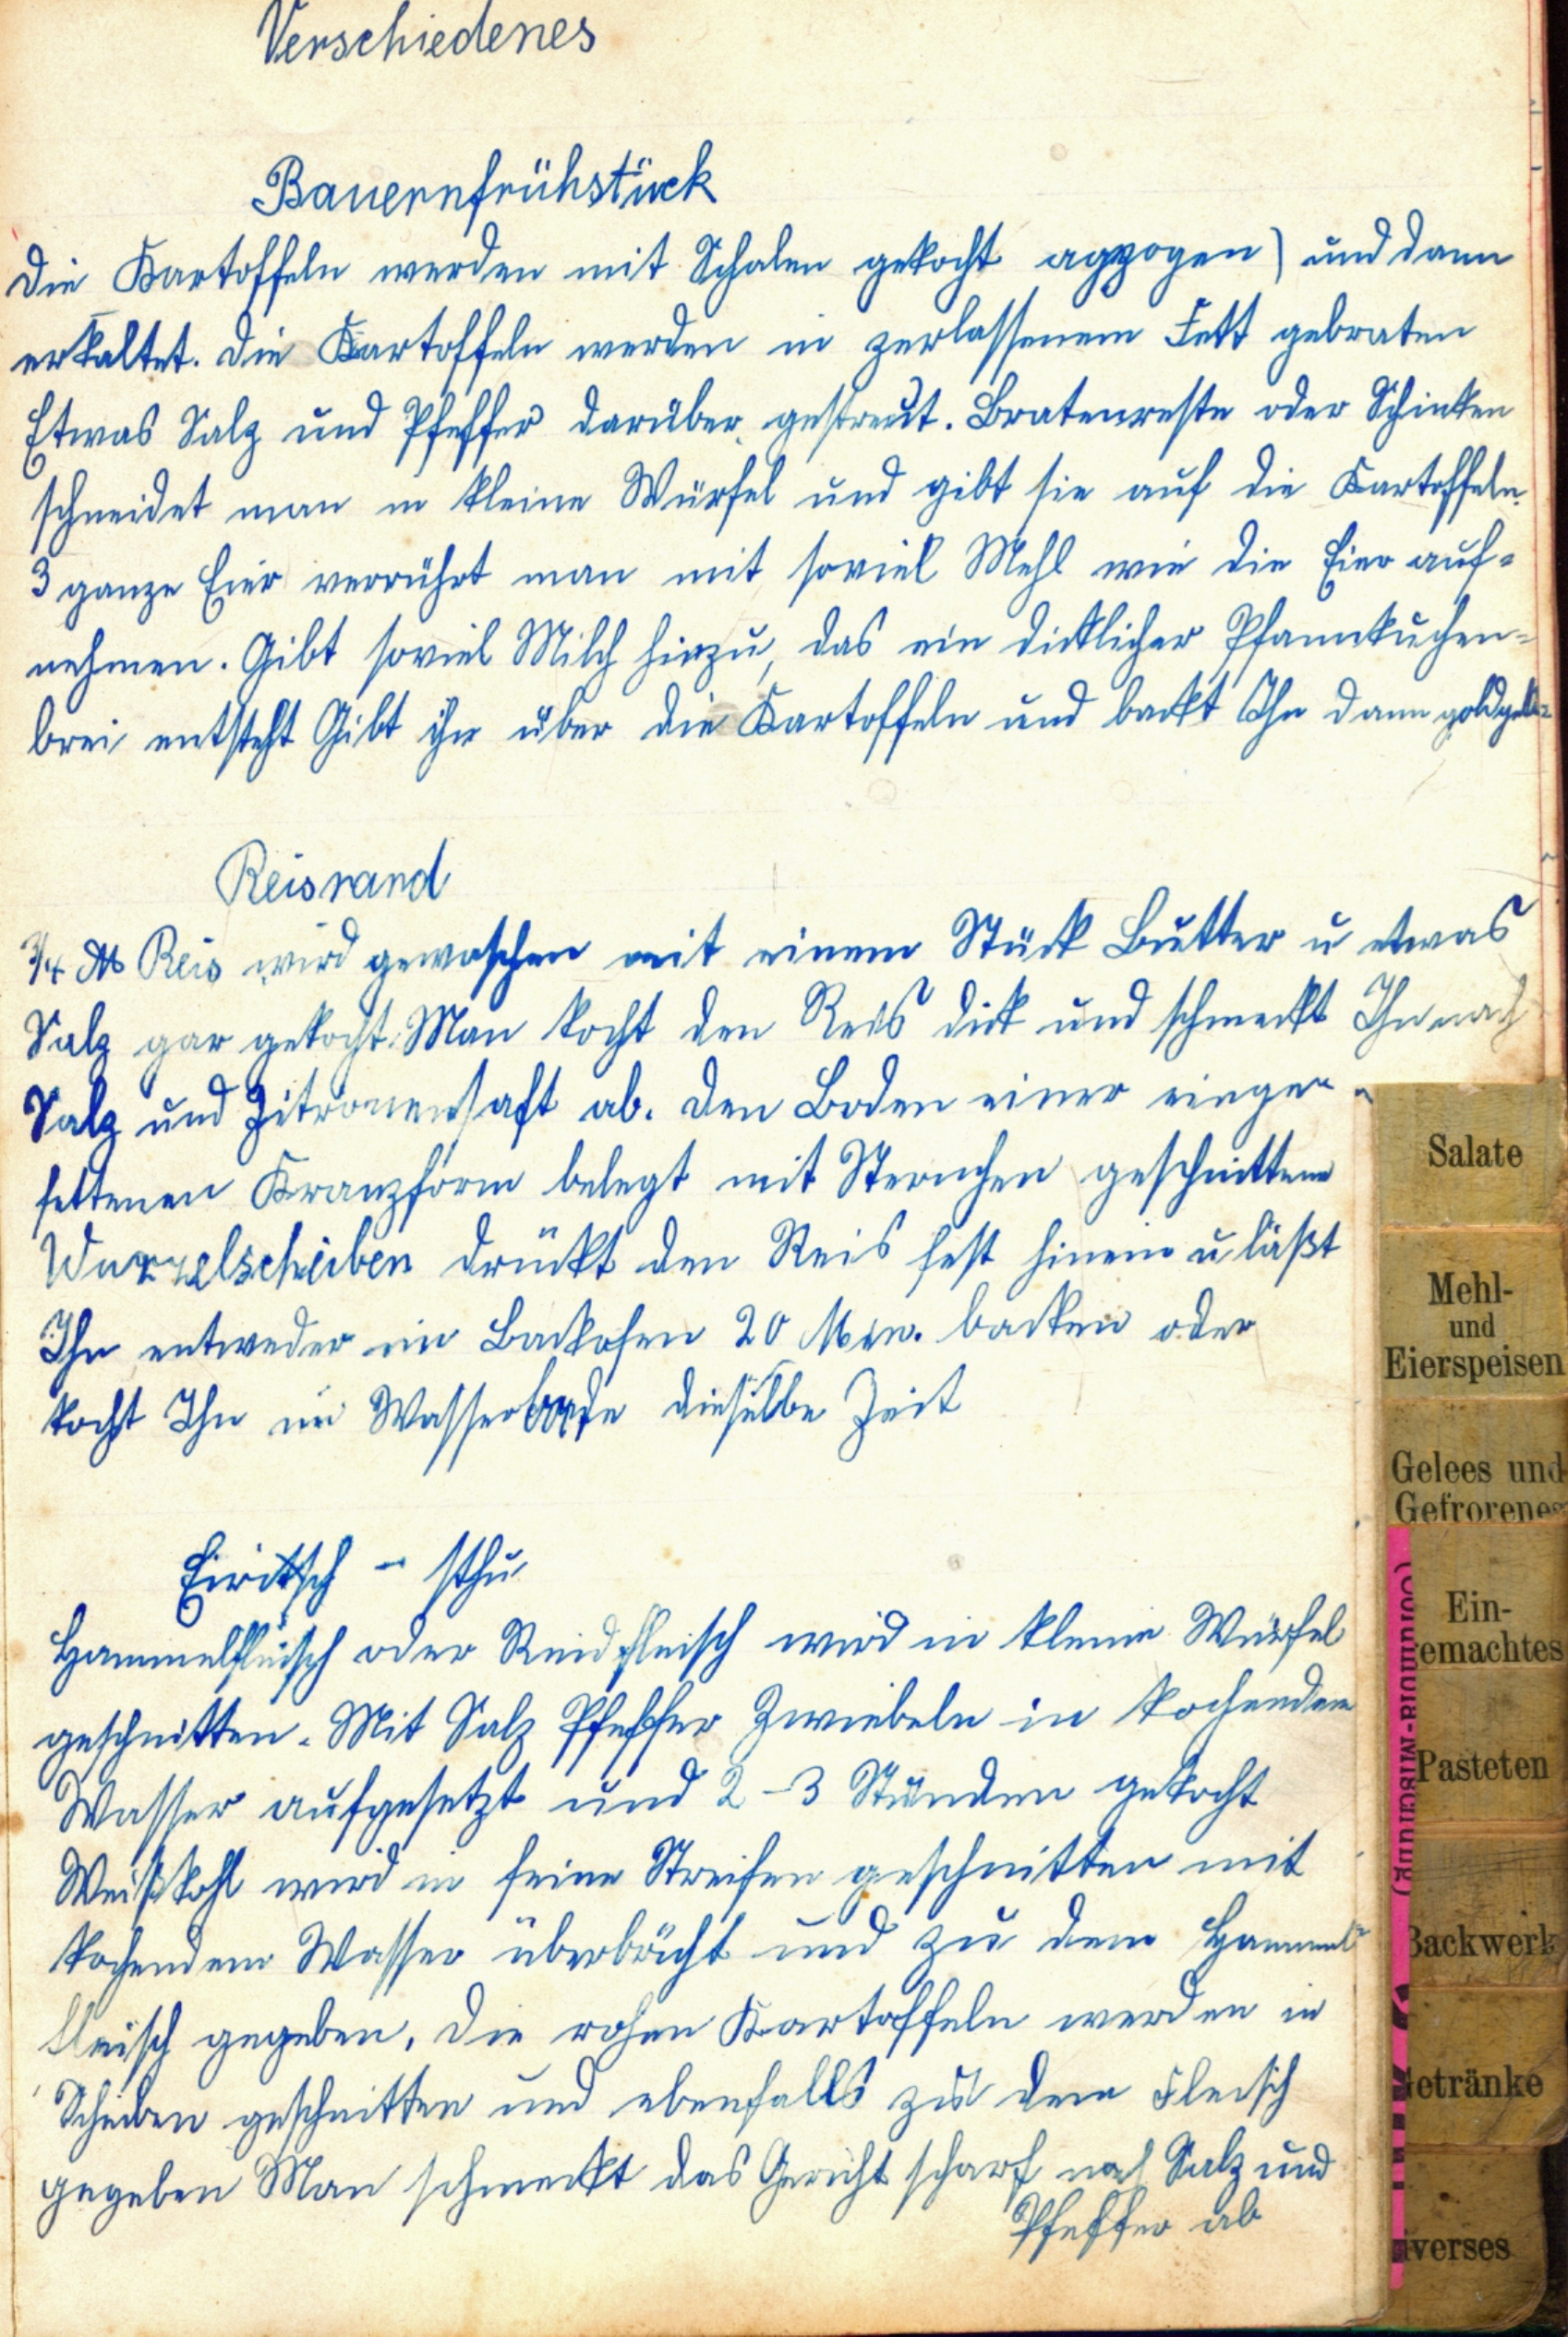 Verschiedenes
Bauernfrühstück
Die Kartoffeln werden mit Schalen gekocht agzogen) und dann
erkaltet. Die Kartoffeln werden in zerlassenem Fett gebraten
Etwas Salz und Pfeffer darüber gestreut. Bratenreste oder Schinken
schneidet man in kleine Würfel und gibt sie auf die Kartoffeln.
3 ganze Eier verrührt man mit soviel Mehl wie die Eier auf=
nehmen. Gibt soviel Milch hinzu, das ein dicklicher Pfannkuchen=
brei entsteht Gibt ihn über die Kartoffeln und backt Ihn dann
Reisrand
3/4 ℔ Reis wird gewaschen mit einem Stück Butter u etwas
Salz gar gekocht. Man kocht den Reis dick und schmeckt Ihn nach
Salz und Zitronensaft ab. Den Boden einer einge=
fettenen Kranzform belegt mit Sternchen geschnittene
Wurzelscheiben drückt den Reis fest hinein u läßt
Ihn entweder im Backofen 20 Min. backen oder
kocht Ihn im Wasserbade dieselbe Zeit
Eiritsch - sthu
Hammelfleisch oder Rindfleisch wird in kleine Würfel
geschnitten. Mit Salz Pfeffer Zwiebeln in kochendem
Wasser aufgesetzt und 2-3 Stunden gekocht
Weißkohl wird in feine Streifen geschnitten mit
kochendem Wasser überbrüht und zu dem Hammel=
fleisch gegeben. Die rohen Kartoffeln werden in
Scheiben geschnitten und ebenfalls zu dem Fleisch
gegeben Man schmeckt das Gericht scharf nach Salz und
Pfeffer ab
Salate
Mehl-
und
Eierspeisen
Gelees und
Gefrorenes
Ein-
emachtes
Pasteten
Backwerk
Getränke
iverses